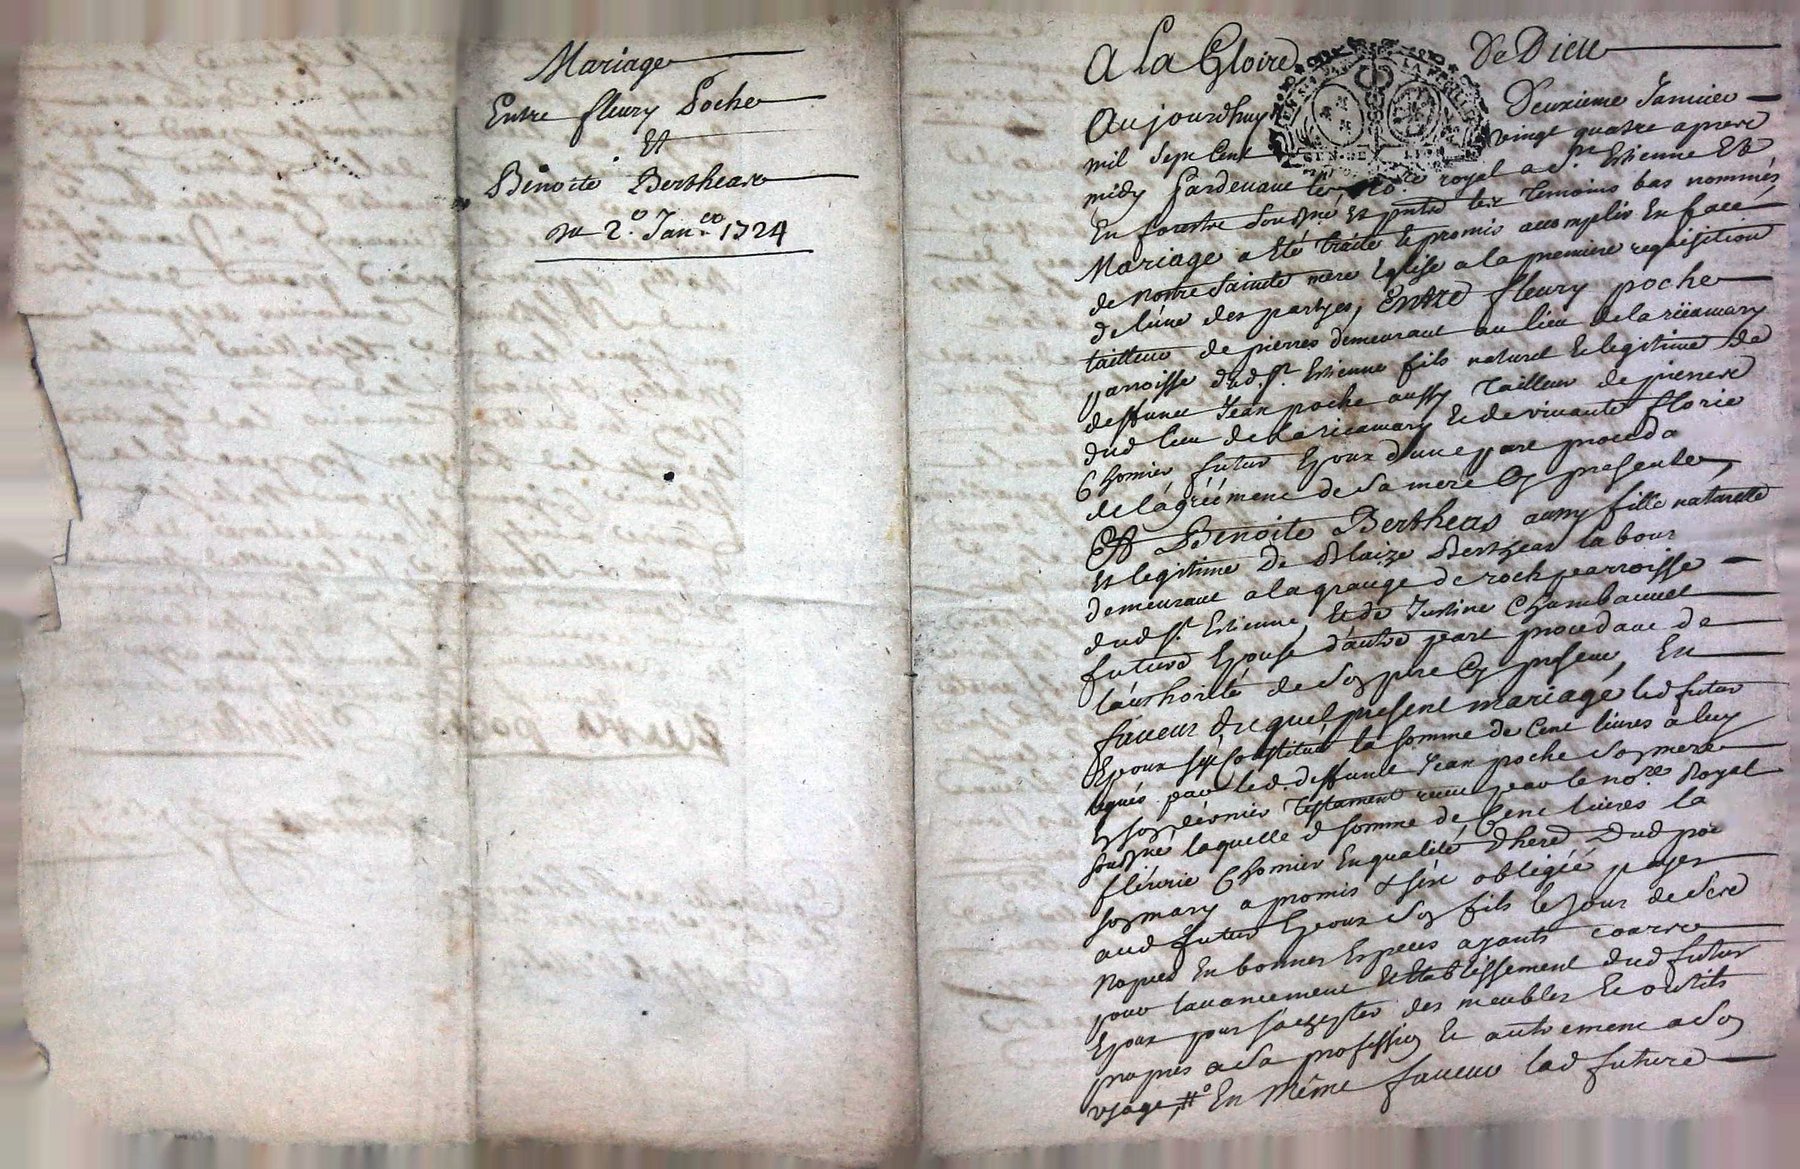 Mariage
Entre fleury Poche
Et
Benoite Bertheas
du 2e. Janer. 1724
A La Gloire De Dieu
Aujourdhuy Deuxieme Janvier
mil sept Cent vingt quatre apres
midy pardevant le nore royal a St Estienne
En forestz soussigné Et pntz les Temoins bas nommés
Mariage a Eté traité et promis accomplir En face
de notre Sainte mere Eglise a la premiere requisition
de lune des partyes, Entre fleury poche
tailleur de pierres demeurant au lieu de la ricamary
parroisse dud. St. Estienne fils naturel et legitime de
deffunct Jean poche aussy Tailleur de pierres
dud lieu de La ricamary et de vivante florie
Chomier futur Epoux dune part proceda
de lagréément de Sa mere Cy presente,
Et Benoite Bertheas aussy fille naturelle
Et legitime De Blaize Bertheas labour
demeurant a la grange de roch parroisse
dud St. Estienne, Et de Justine Chambauvet
future Epouse dautre part procedant de
lauthorité de Son pere Cy present, En
faveur duquel present mariage led futur
Epoux sest Constitué la somme de Cent livres a luy
legués par led. deffunct Jean poche Son pere
En son dernier Testament receu par le nore Royal
soussigné laquelle d somme de Cent livres la
fleurie Chomier En qualité dhered. Dud poc
son mary a promis & sest obligée payer
aud futur Epoux Son fils le Jour de Ses
nopces En bonnes Especes ayants course
pour lavancement et Etablissement dud futur
Epoux pour sachepter des meubles Et outils
propres a Sa profession Et autrement a Son
usage, # En Même faveur lad future